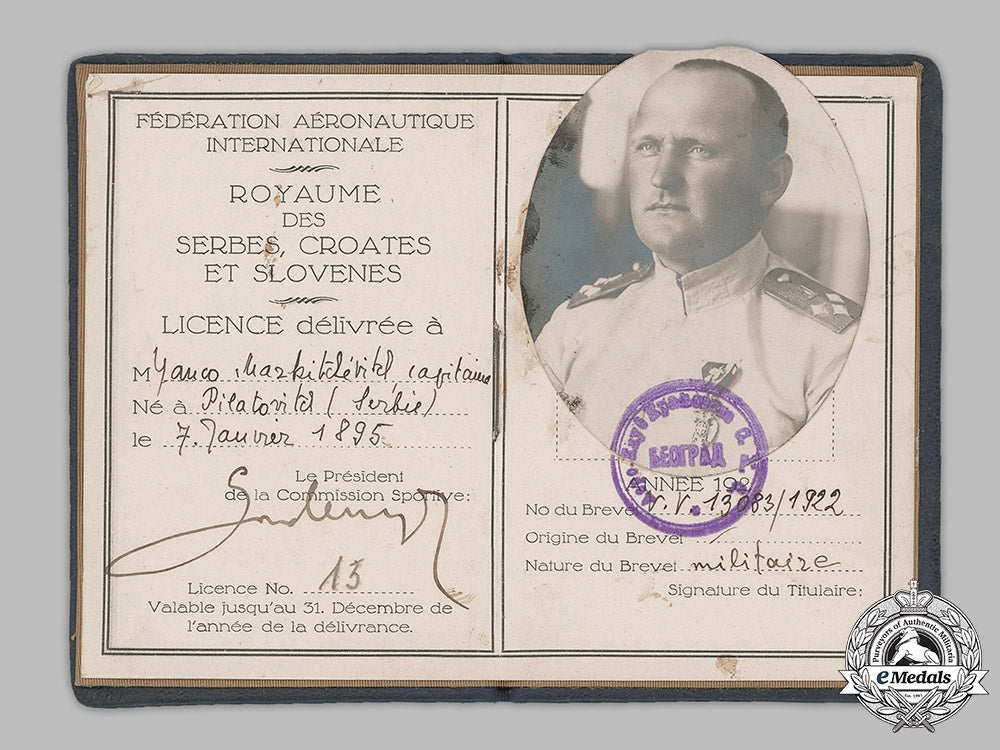 FÉDÉRATION AÉRONAUTIQUE
INTERNATIONALE
ROYAUME
DES
SERBES, CROATES
ET SLOVENES
LICENCE délivrée à
M Yanco Markitchévitch capitaine
Né à Pilatovitch (Serbie)
le 7. Janvier 1895
Le Président
de la Commission Sportive:
Licence No. 15
Valable jusqu'au 31. Décembre de
l'année de la délivrance.
БЕОГРАД
ANNÉE 192
No du Brevet v.V. 13083/1922
Origine du Brevet
Nature du Brevet militaire
Signature du Titulaire:
Purveyors of Authentic Militaria
eMedals